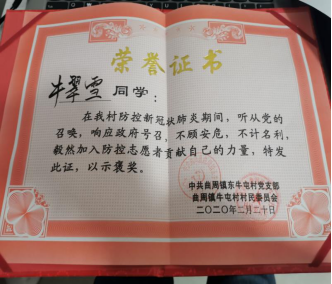 荣誉证书
牛翠雪 同学：
在我村防控新冠状肺炎期间，听从党的
召唤，响应政府号召，不顾安危，不计名利，
毅然加入防控志愿者贡献自己的力量，特发
此证，以示褒奖。
中共曲周镇东牛屯村党支部
曲周镇牛屯村村民委员会
二〇二〇年二月二十日